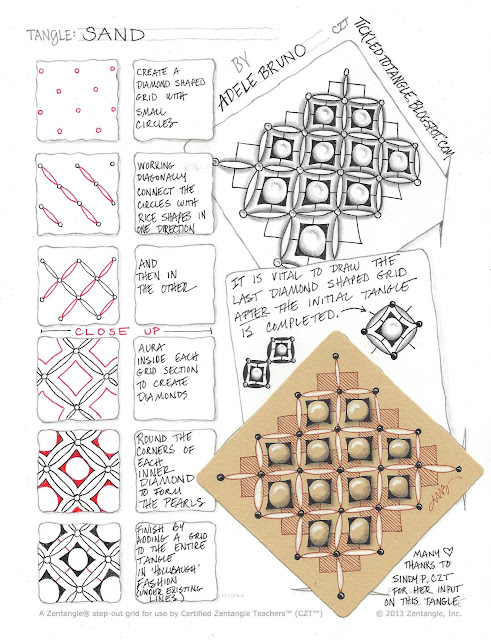 TANGLE: SAND
BY
ADELE BRUNO CZT
TICKLEDTOTANGLE.BLOGSPOT.COM
CREATE A
DIAMOND SHAPED
GRID WITH
SMALL
CIRCLES
WORKING
DIAGONALLY
CONNECT THE
CIRCLES WITH
RICE SHAPES IN
ONE DIRECTION
AND
THEN IN
THE OTHER
CLOSE UP
AURA
INSIDE EACH
GRID SECTION
TO CREATE
DIAMONDS
ROUND THE
CORNERS OF
EACH
INNER
DIAMOND
TO FORM
THE PEARLS
FINISH BY
ADDING A GRID
TO THE ENTIRE
TANGLE
IN 'HOLLIBAUGH'
FASHION
(UNDER EXISTING
LINES)
IT IS VITAL TO DRAW THE
LAST DIAMOND SHAPED GRID
AFTER THE INITIAL TANGLE
IS COMPLETED.
MANY
THANKS TO
SINDY P., CZT
FOR HER INPUT
ON THIS TANGLE.
A Zentangle® step-out grid for use by Certified Zentangle Teachers™ (CZT™)
© 2013 Zentangle, Inc.